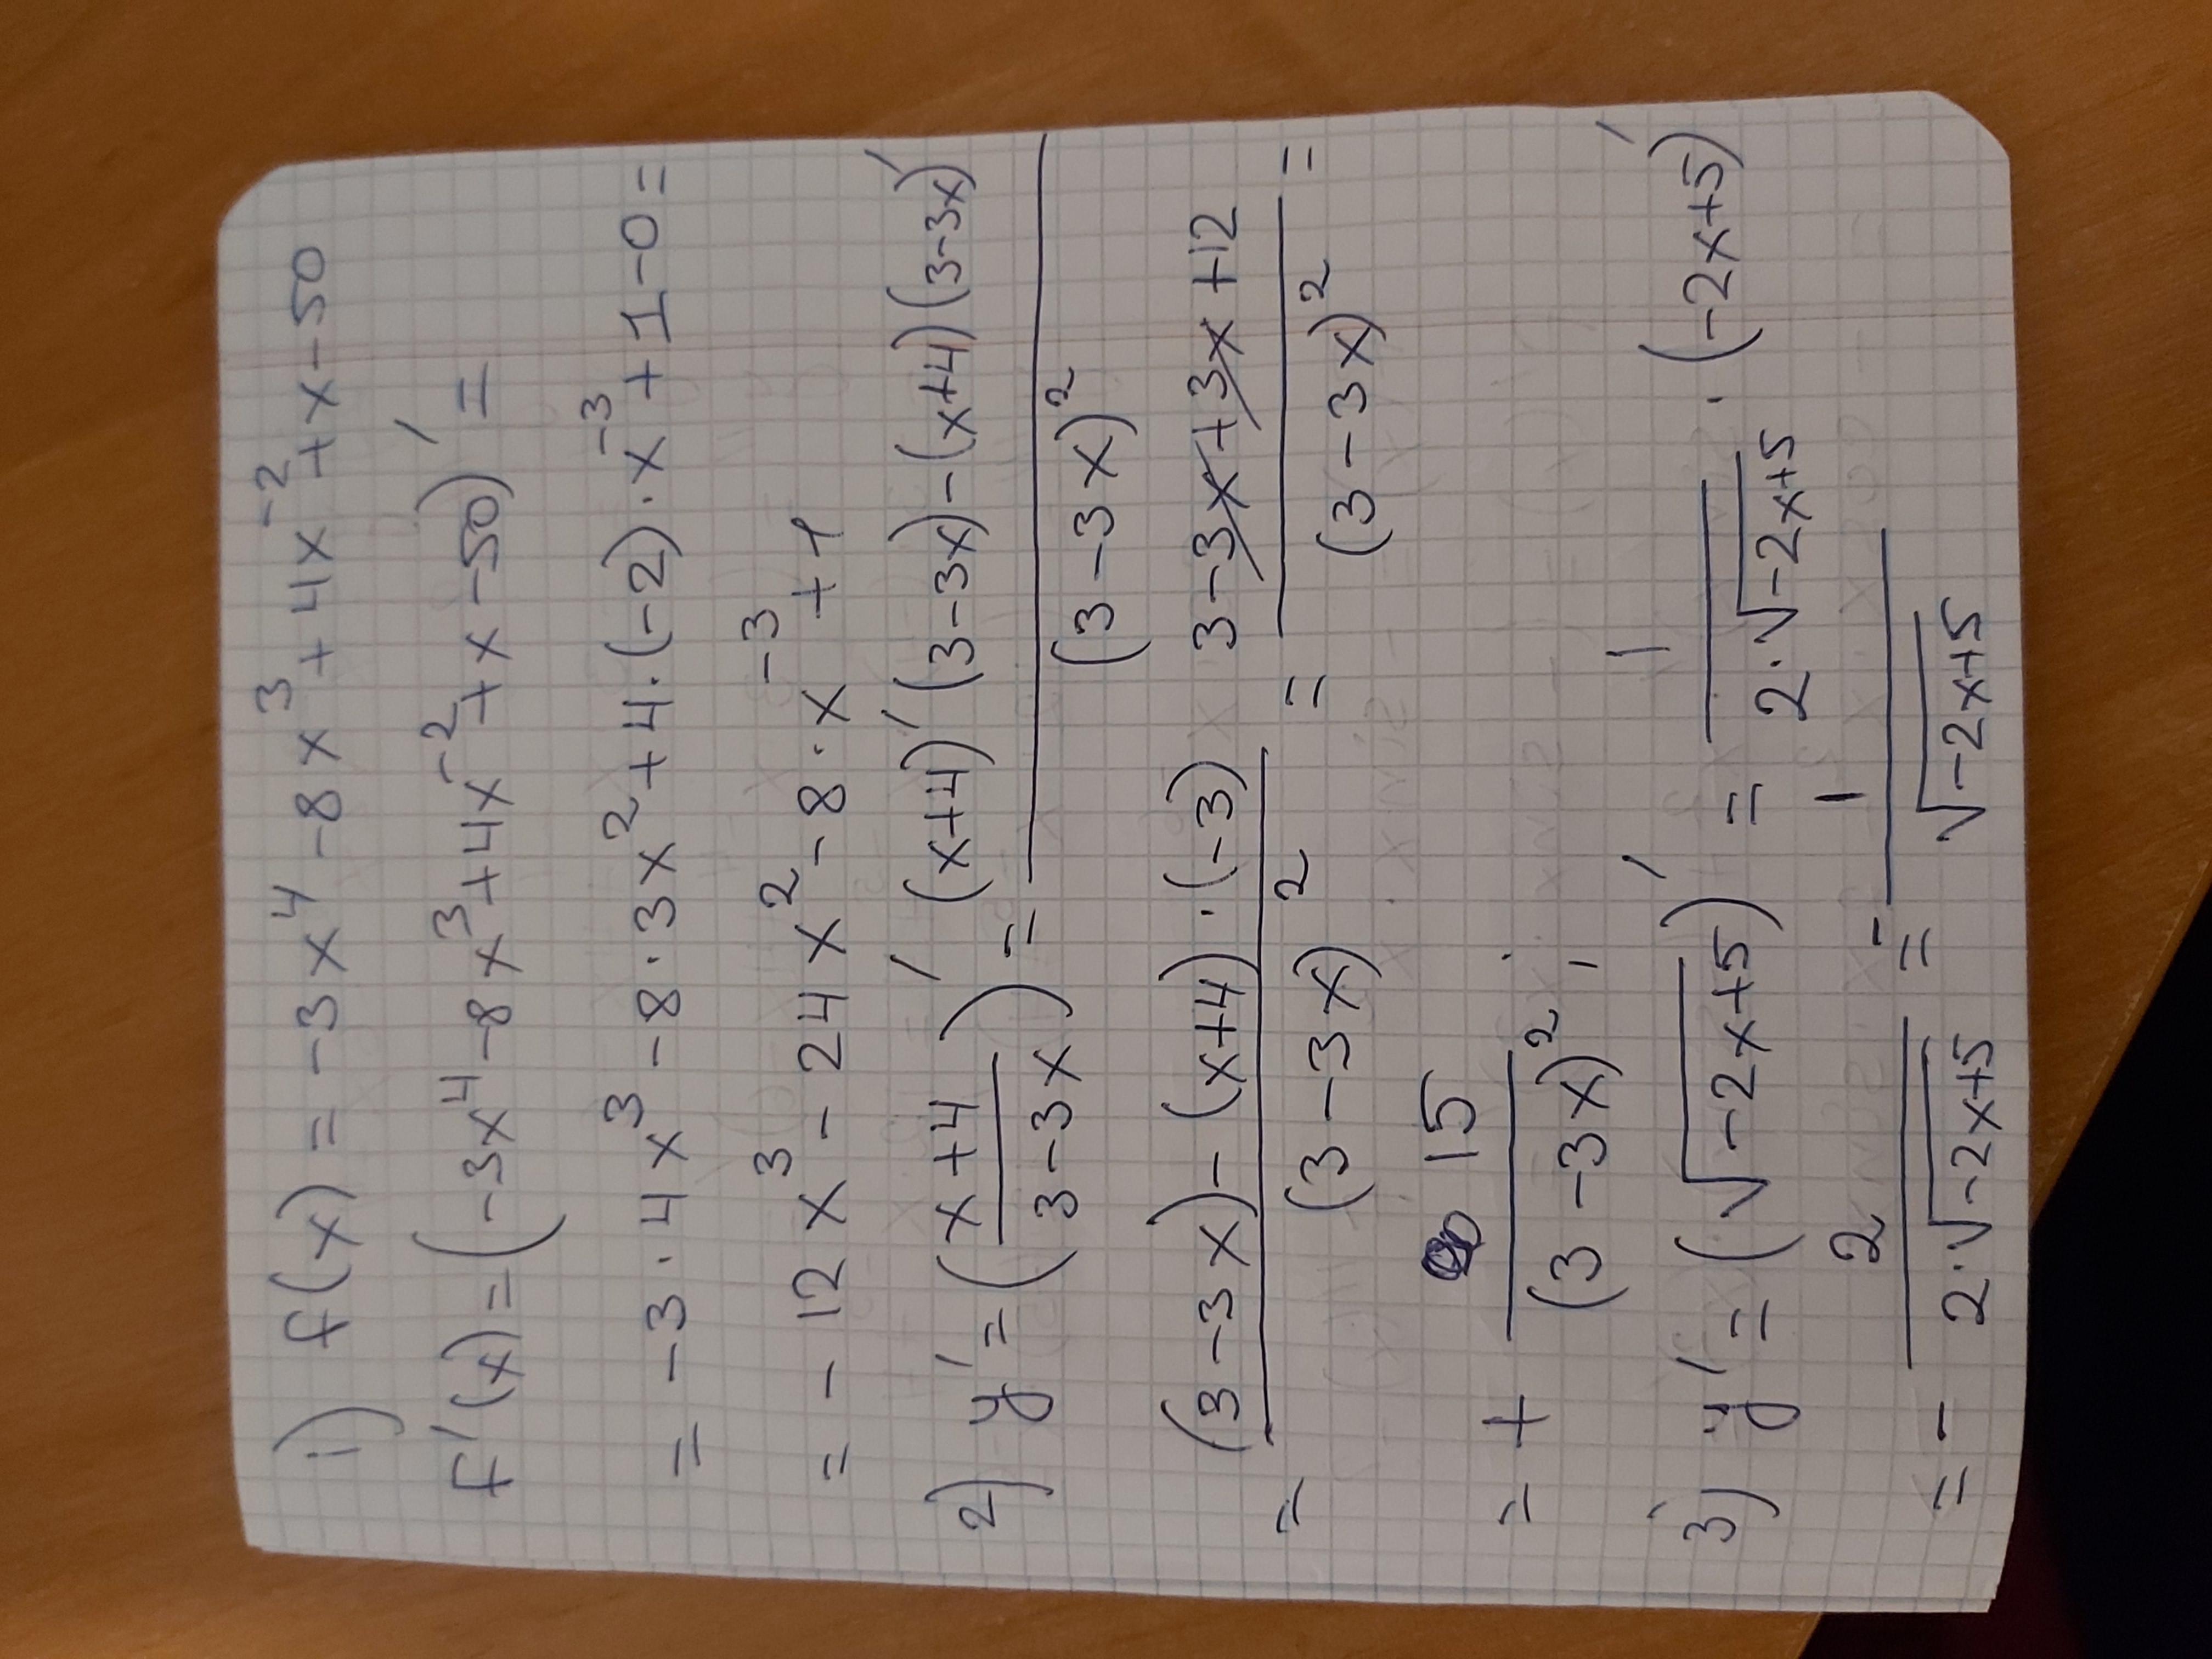 1) f(x) = -3x⁴ - 8x³ + 4x⁻² + x - 50
f'(x) = (-3x⁴ - 8x³ + 4x⁻² + x - 50)' =
= -3 · 4x³ - 8 · 3x² + 4 · (-2) · x⁻³ + 1 - 0 =
= - 12x³ - 24x² - 8 · x⁻³ + 1
2) y' = ((x+4)/(3-3x))' = ((x+4)'(3-3x) - (x+4)(3-3x)')/(3-3x)²
= ((3-3x) - (x+4) · (-3))/(3-3x)² = (3-3x+3x+12)/(3-3x)² =
= + 15/(3-3x)² ;
3) y' = (√(-2x+5))' = 1/(2·√(-2x+5)) · (-2x+5)'
= - 2/(2·√(-2x+5)) = - 1/√(-2x+5)